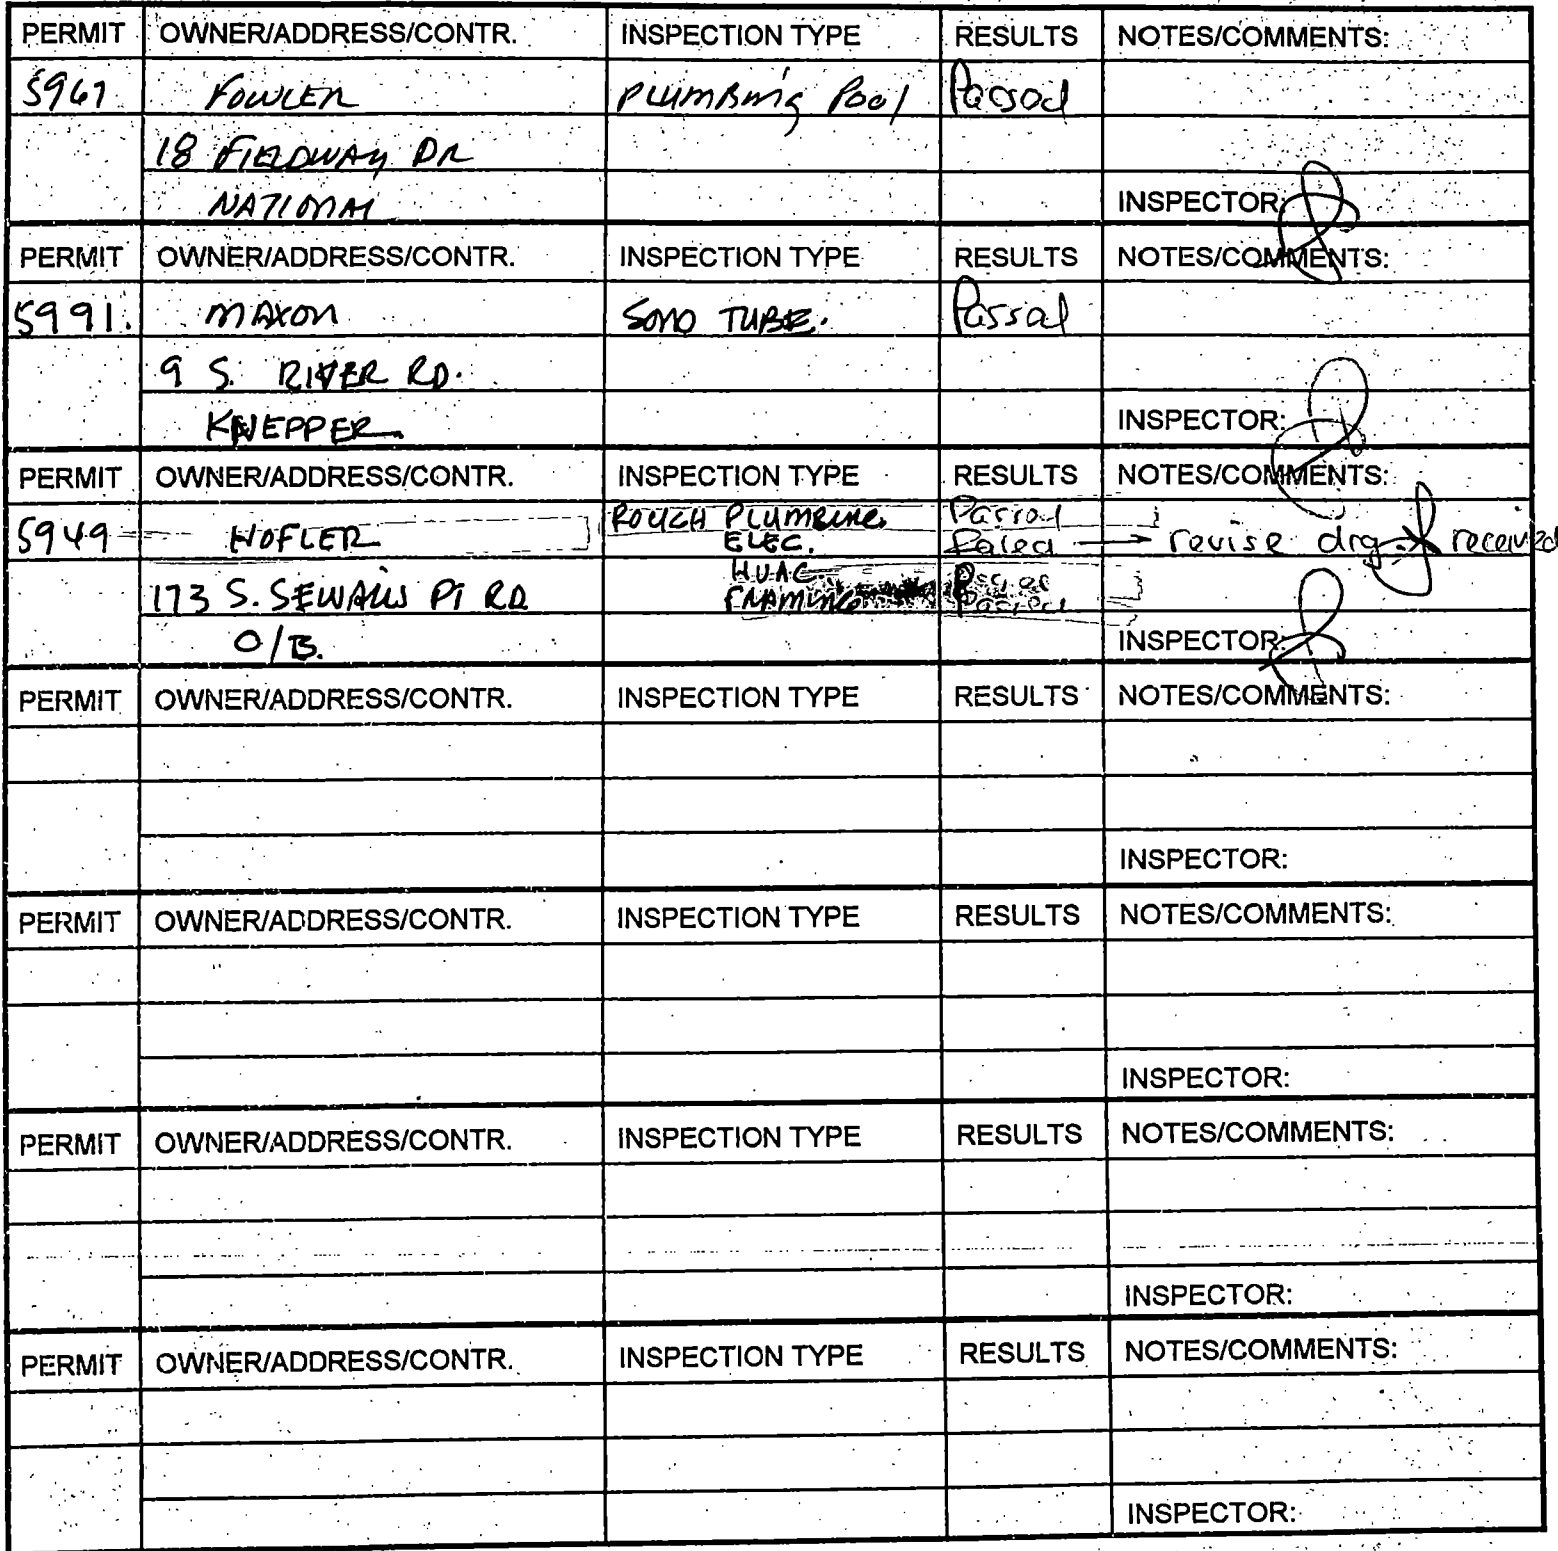 PERMIT OWNER/ADDRESS/CONTR. INSPECTION TYPE RESULTS NOTES/COMMENTS:
5967 FOWLER PLUMBING Pool Passed
18 FIELDWAY DR
NATIONAL INSPECTOR:
PERMIT OWNER/ADDRESS/CONTR. INSPECTION TYPE RESULTS NOTES/COMMENTS:
5991. MAXON SONO TUBE. Passed
9 S. RIVER RD.
KNEPPER INSPECTOR:
PERMIT OWNER/ADDRESS/CONTR. INSPECTION TYPE RESULTS NOTES/COMMENTS:
ROUGH PLUMBING Passed
5949 HOFLER ELEC. Failed → revise drg. received
HVAC Passed
173 S. SEWALLS PT RD FRAMING Passed
O/B. INSPECTOR:
PERMIT OWNER/ADDRESS/CONTR. INSPECTION TYPE RESULTS NOTES/COMMENTS:
INSPECTOR:
PERMIT OWNER/ADDRESS/CONTR. INSPECTION TYPE RESULTS NOTES/COMMENTS:
INSPECTOR:
PERMIT OWNER/ADDRESS/CONTR. INSPECTION TYPE RESULTS NOTES/COMMENTS:
INSPECTOR:
PERMIT OWNER/ADDRESS/CONTR. INSPECTION TYPE RESULTS NOTES/COMMENTS:
INSPECTOR: